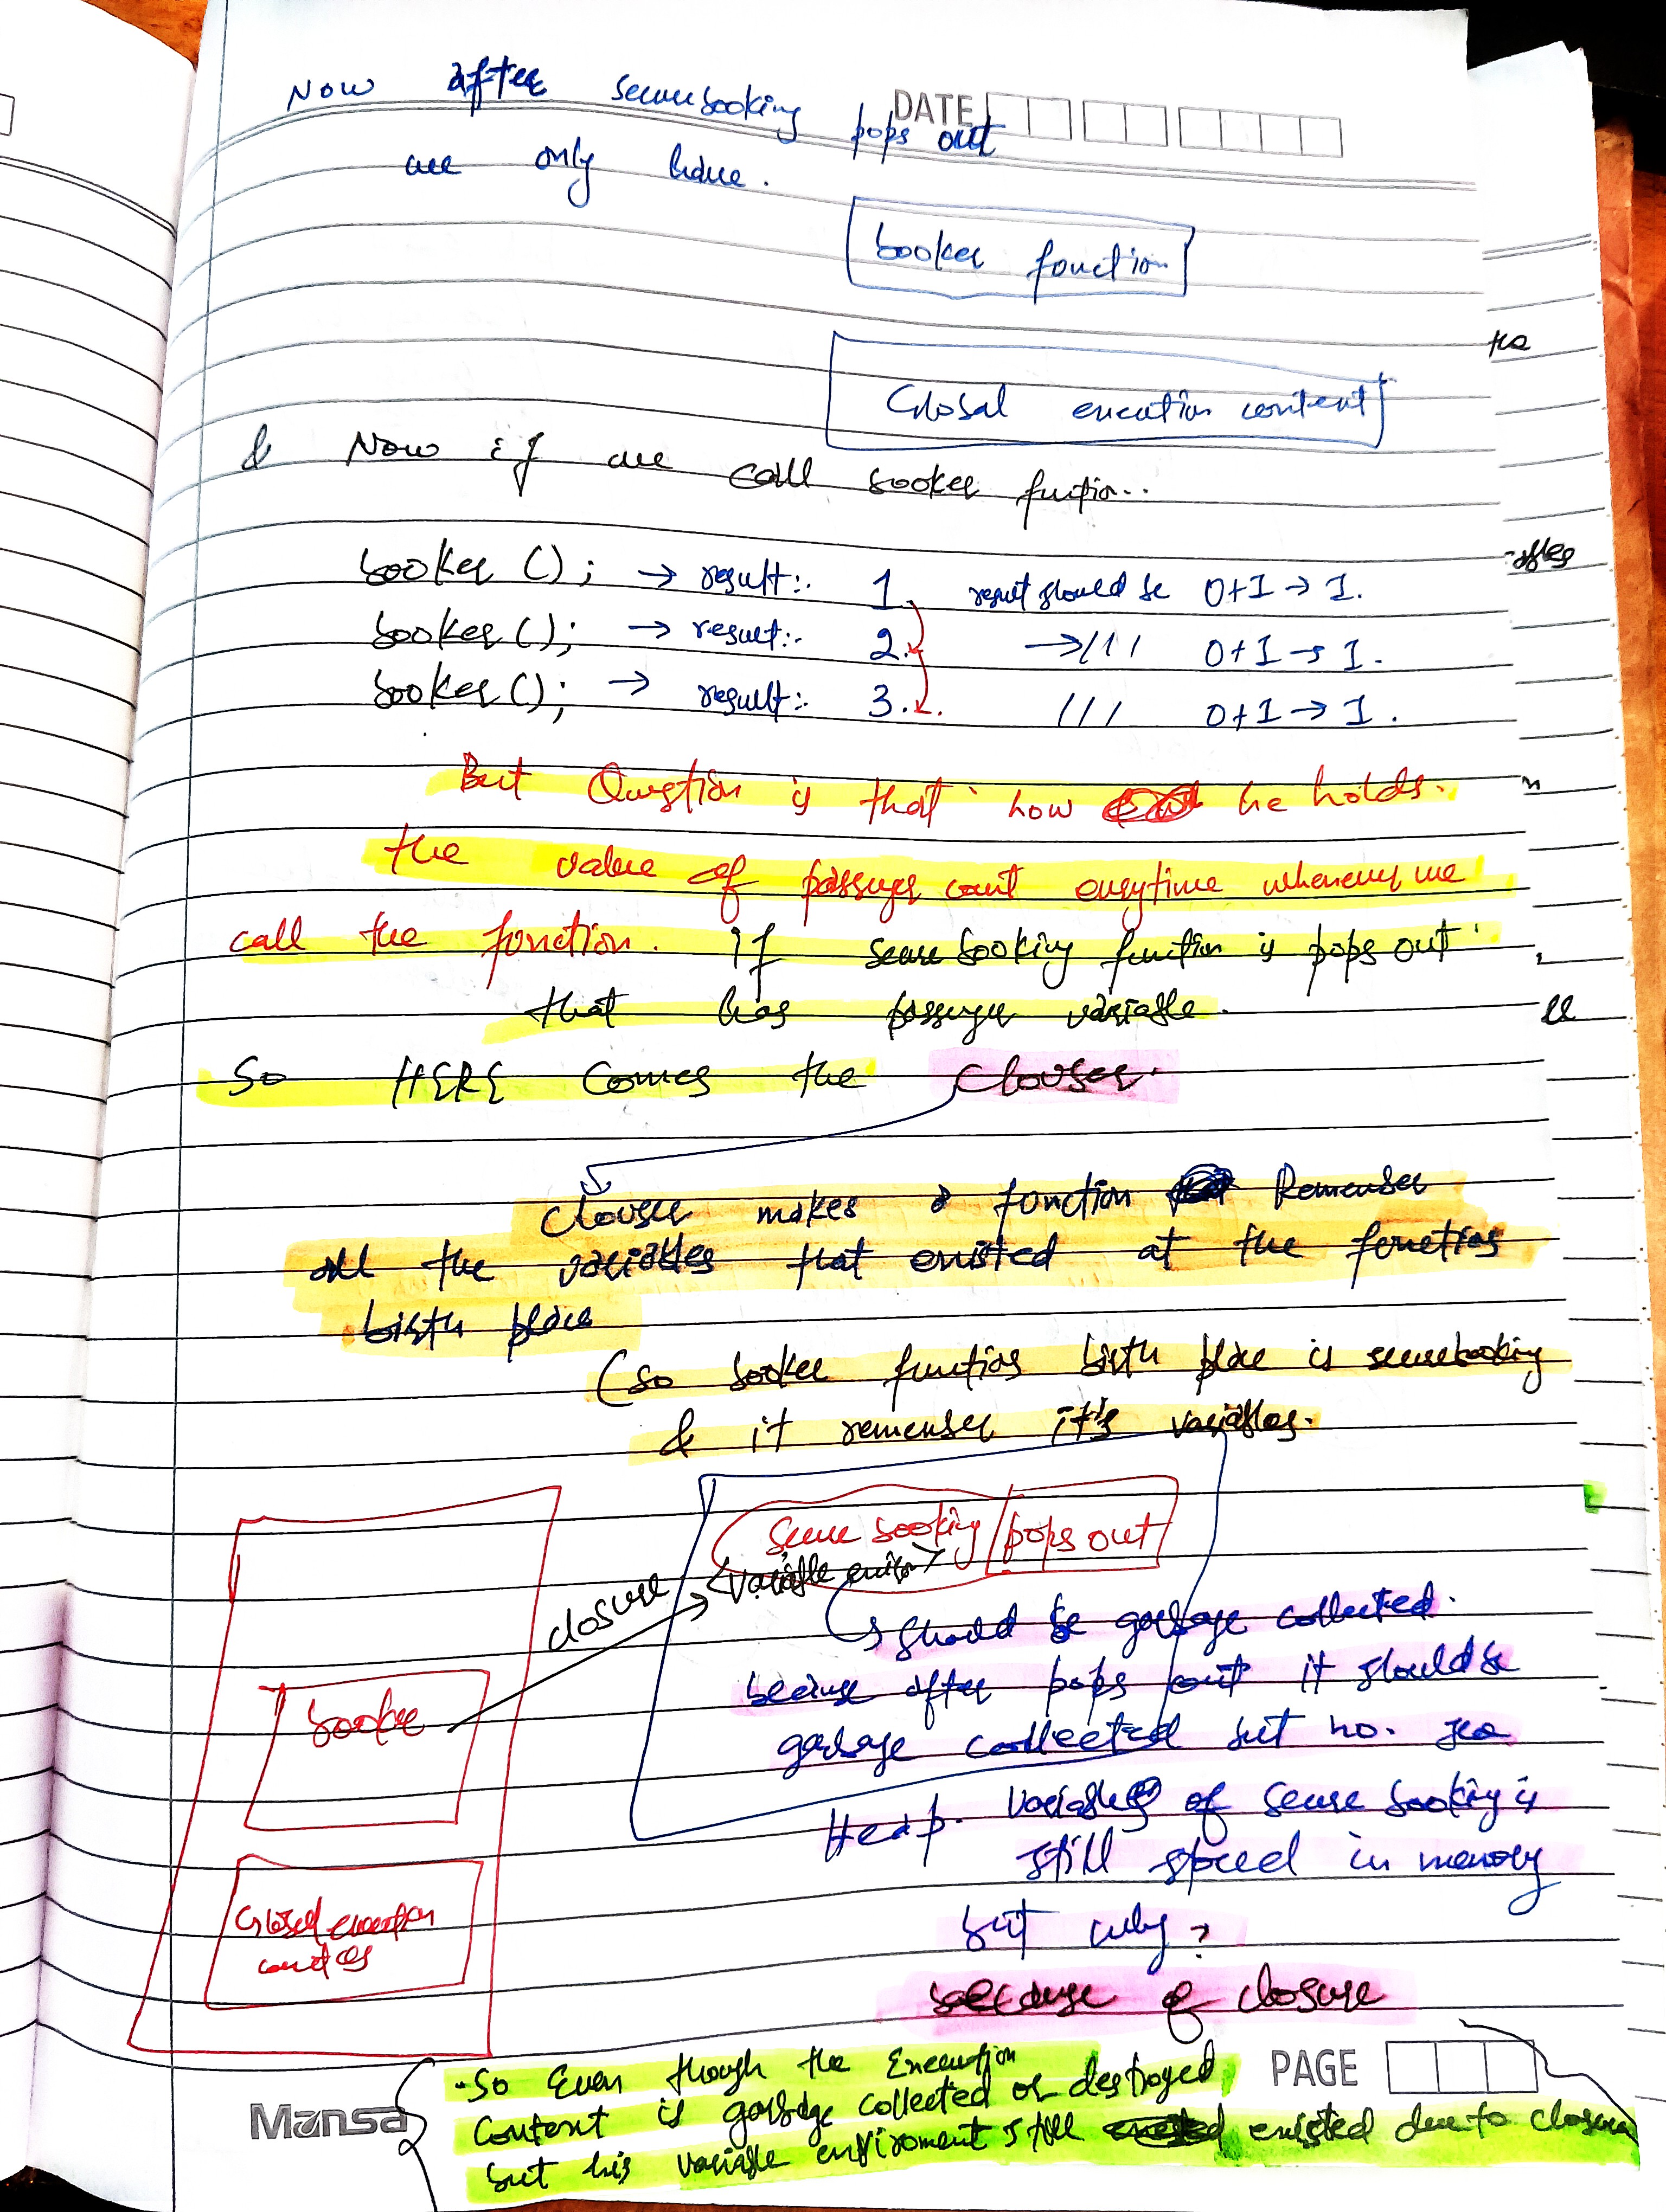 DATE
Now after securebooking pops out
we only have.
booker function
Global execution context
& Now if we call booker function..
booker (); → result:- 1. result should be 0+1 → 1.
booker (); → result:- 2. → /// 0+1 → 1.
booker (); → result:- 3. /// 0+1 → 1.
But Question is that how he holds.
the value of passenger count everytime whenever we
call the function. If secure booking function is pops out
that has passenger variable.
So HERE Comes the Clouser.
Clouser makes a function Remember
all the variables that existed at the functions
birth place
(so booker functions birth place is securebooking
& it remember it's variables.
secure booking pops out
closure
<variable environ>
should be garbage collected.
because after pops out it should be
garbage collected but no. the
Heap. variables of secure booking is
still stored in memory
but why?
because of closure
booker
Global execution
contex
-So Even though the Execution
Context is garbage collected or destroyed
but his variable enviroment still existed due to closure
PAGE
Mansa
the
after
n
,